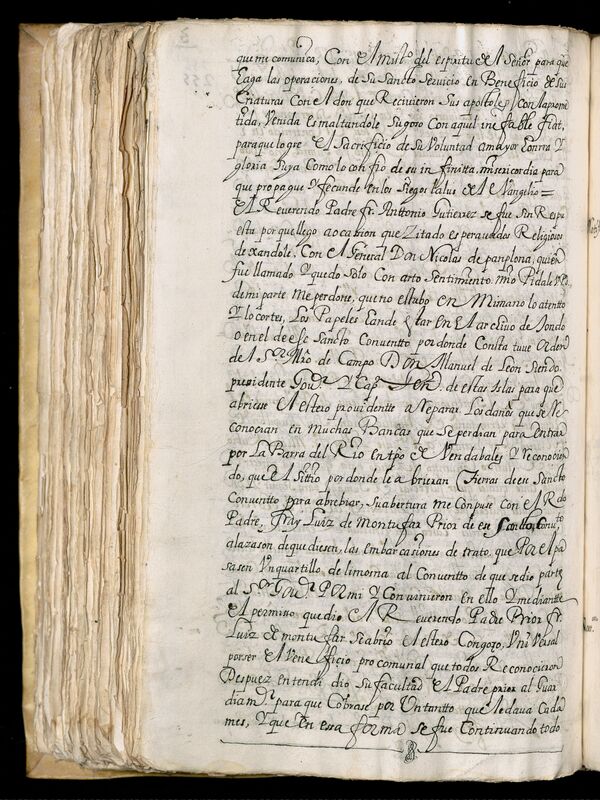 que me comunica, Con El Misº. del espritu de El Señor para que
Eaga las operaciones, de Su Sancto Seruicio en Beneficio de sus
Criaturas Con El don que Reciuieron Sus apostoles / con la prome
tida, Venida Esmaltandole Su gozo Con aquel inefable fiat,
para que logre El Sacrificio de Su Voluntad a mayor honrra Y
gloria Suya Como lo confio de su infinitta misericordia para
que propague Y fecunde En los Siegos Valus de El Vangelio =
El Reuerendo Padre fr. Anttonio Gutierrez se fue Sin Respu
esta por que llego a ocabion que Zitado esperaua dos Religiosos
dexandole, Con El General Don Nicolas de panplona, quien
fue llamado Y quedo Solo Con arto Sentimiento mio Pidale V.R.
de mi parte Me perdone, que no estubo en Mi mano lo atentto
Y lo cortes, Los Papeles Eande Estar En El archiuo de tondo
o en el de ese Sancto Conuentto por donde Consta tuue Orden
de El Sr. Mro. de Campo Don Manuel de Leon Siendo
presidente Gour. Y Capn. Genl. de estas Islas para que
abriese El estero prouidentte a Reparar Los daños que se Re
conocian en Muchas Bancas que se perdian para entrar
por La Barra del Rio en tpo de Vendabales Y reconocien
do, que El Sittio por donde le abriexan Tierras de ese Sancto
Conuentto para abrebiar, Su abertura me Conpuse con El Rdo
Padre, Fray Luiz de Montufar Prior de ese Sancto Conuto
a la zason de que diesen, las embarcasiones de trato, que Por El pa
sasen Vn quartillo de limosna al Conuentto de que se dio parte
al Sr. Gour. Por mi Y Conuinieron en Ello Y mediantte
El permisso que dio El Reuerendo Padre Prior fr.
Luiz de montufar Se abrio El estero Con gozo, Vniuersal
por ser El Veneficio pro comunal que todos Reconocieron
Despuez entendi dio Su facultad El Padre prior al Guar
dian mr. para que Cobrase por Vn tantto que le daua Cada
mes, Y que En essa forma se fue Continuando todo